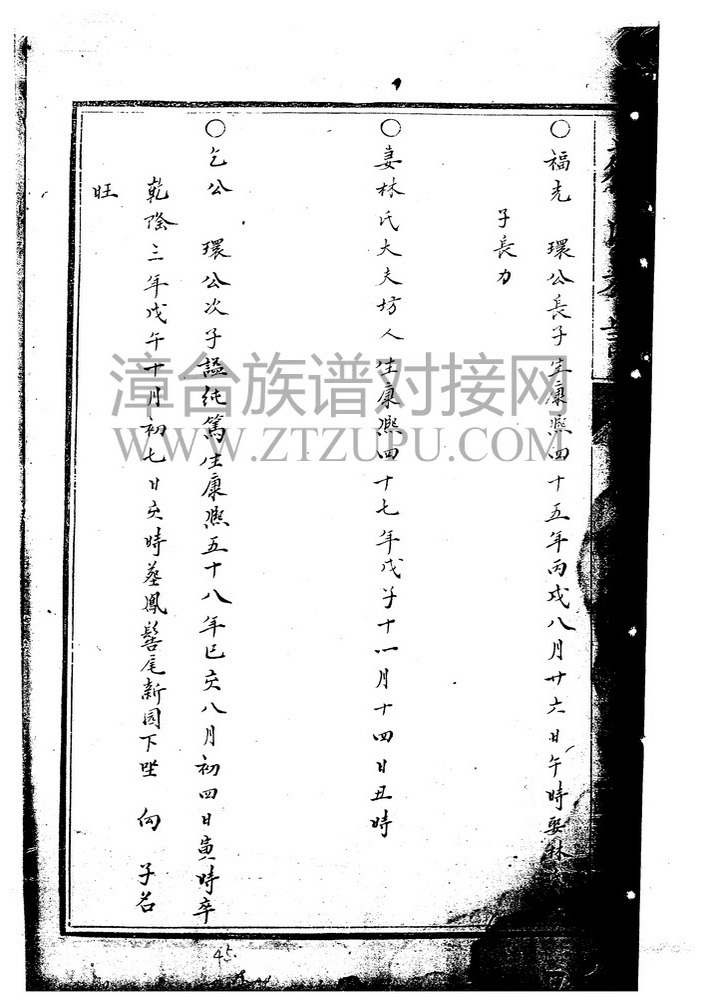 ○福先 環公長子生康熙四十五年丙戌八月廿六日午時娶林
子長力
○妻林氏大夫坊人生康熙四十七年戊子十一月十四日丑時
○乞公 環公次子諡純篤生康熙五十八年己亥八月初四日寅時卒
乾隆三年戊午十月初七日亥時葬鳳髻尾新園下坐 向 子名
旺
漳台族谱对接网
WWW.ZTZUPU.COM
45